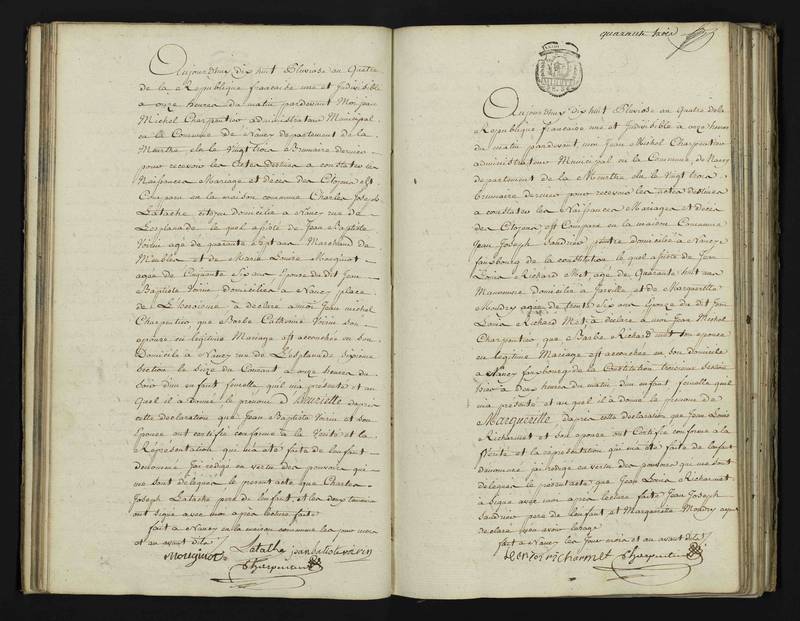 Aujourd'huy dix huit Pluviose an Quatre
de la Republique francaise une et Indivisible
a onze heures du matin pardevant Moi jean
Michel Charpentier administrateur Municipal
en la Commune de Nancy departement de la
Meurthe elu le Vingt trois Brumaire dernier
pour recevoir les Actes destinés a constater les
Naissances Mariage et décès des Citoyens est
Comparu en la maison commune Charles Joseph
Latache citoyen domicilié a Nancy rue de
L'esplanade, le quel assisté de Jean Baptiste
Voirin agé de sept ans Marchand de
Meubles et de Marie Louise
agée de Cinquante Six ans Epouse du dit Jean
Baptiste Voirin domiciliés a Nancy place
de a déclaré a moi Jean michel
Charpentier, que Barbe Catherine Voirin son
epouse en légitime Mariage est accouchée en son
Domicile a Nancy rue de L'esplanade Sixieme
Section le Seize du Courant a onze heures du
Soir d'un enfant femelle, qu'il m'a présenté et au
quel il a donné le prenom d' d'après
cette déclaration que Jean Baptiste Voirin et son
Epouse ont certifié conforme a la Verité et la
Réprésentation qui m'a été faite de l'enfant
denommé j'ai rédigé en vertu des pouvoirs qui
me sont délégués le présent acte que Charles
Joseph Latache pere de l'enfant, et les deux temoins
ont signé avec moi après lecture faite
fait a Nancy en la maison commune les jour mois
et an avant dits
Latache jean batiste voirin
Charpentier
quarante trois
Aujourd'huy dix huit Pluviose an Quatre de la
Republique francaise une et Indivisible a onze heures
du matin pardevant, moi Jean Michel Charpentier
administrateur Municipal en la Commune, de Nancy
departement de la Meurthe elu le vingt trois
brumaire dernier pour recevoir les actes destinés
a constater les Naissances Mariages et décès
des Citoyens est Comparu en la maison Commune
Jean Joseph domicilié a Nancy
fauxbourg de la constitution le quel assisté de Jean
Louis Richard Met, agé de Quarante huit ans
Manœuvre domicilié a Jarville et de Margueritte
Moudry agée de trente six ans Epouse du dit Jean
Louis Richard Met, a déclaré a moi Jean Michel
Charpentier, que Barbe Richard son epouse
en légitime Mariage est accouchée en son domicile
a Nancy fauxbourg de la Constitution troisieme Section
hier a heures du matin d'un enfant femelle quil
m'a présenté et au quel il a donné le prenom de
Margueritte, d'après cette déclaration que Jean Louis
Richarmet et son epouse ont Certifié conforme a la
Verité et la réprésentation qui m'a été faite de l'enfant
denommé j'ai rédigé en vertu des pouvoirs qui me sont
délégués le présent acte que Jean Louis Richarmet
a signé avec moi après lecture faite Jean Joseph
pere de l'enfant et Marguerite Moudry ayant
declaré
fait a Nancy les Jour mois et an avant dits
richarmet Charpentier